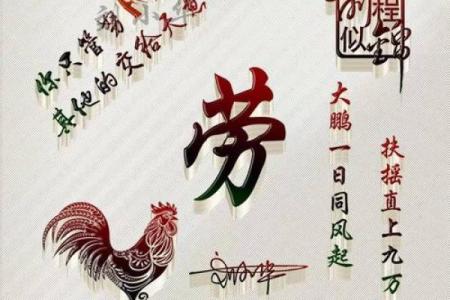 你只管努
其他的交给天
前程
似锦
劳
大鹏一日同风起
扶摇直上九万